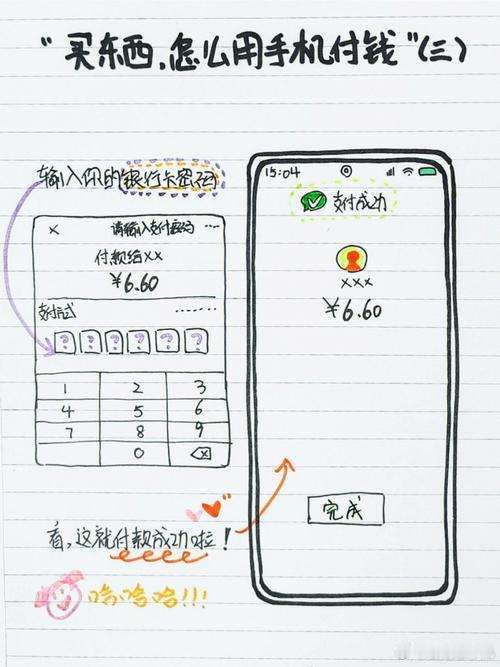 “买东西,怎么用手机付钱”(三)
输入你的银行卡密码
× 请输入支付密码 ...
付款给××
¥6.60
支付方式 .......
? ? ? ? ? ?
1 2 3
4 5 6
7 8 9
0
看,这就付款成功啦!
哈哈哈!!!
15:04
支付成功
×××
¥6.60
完成